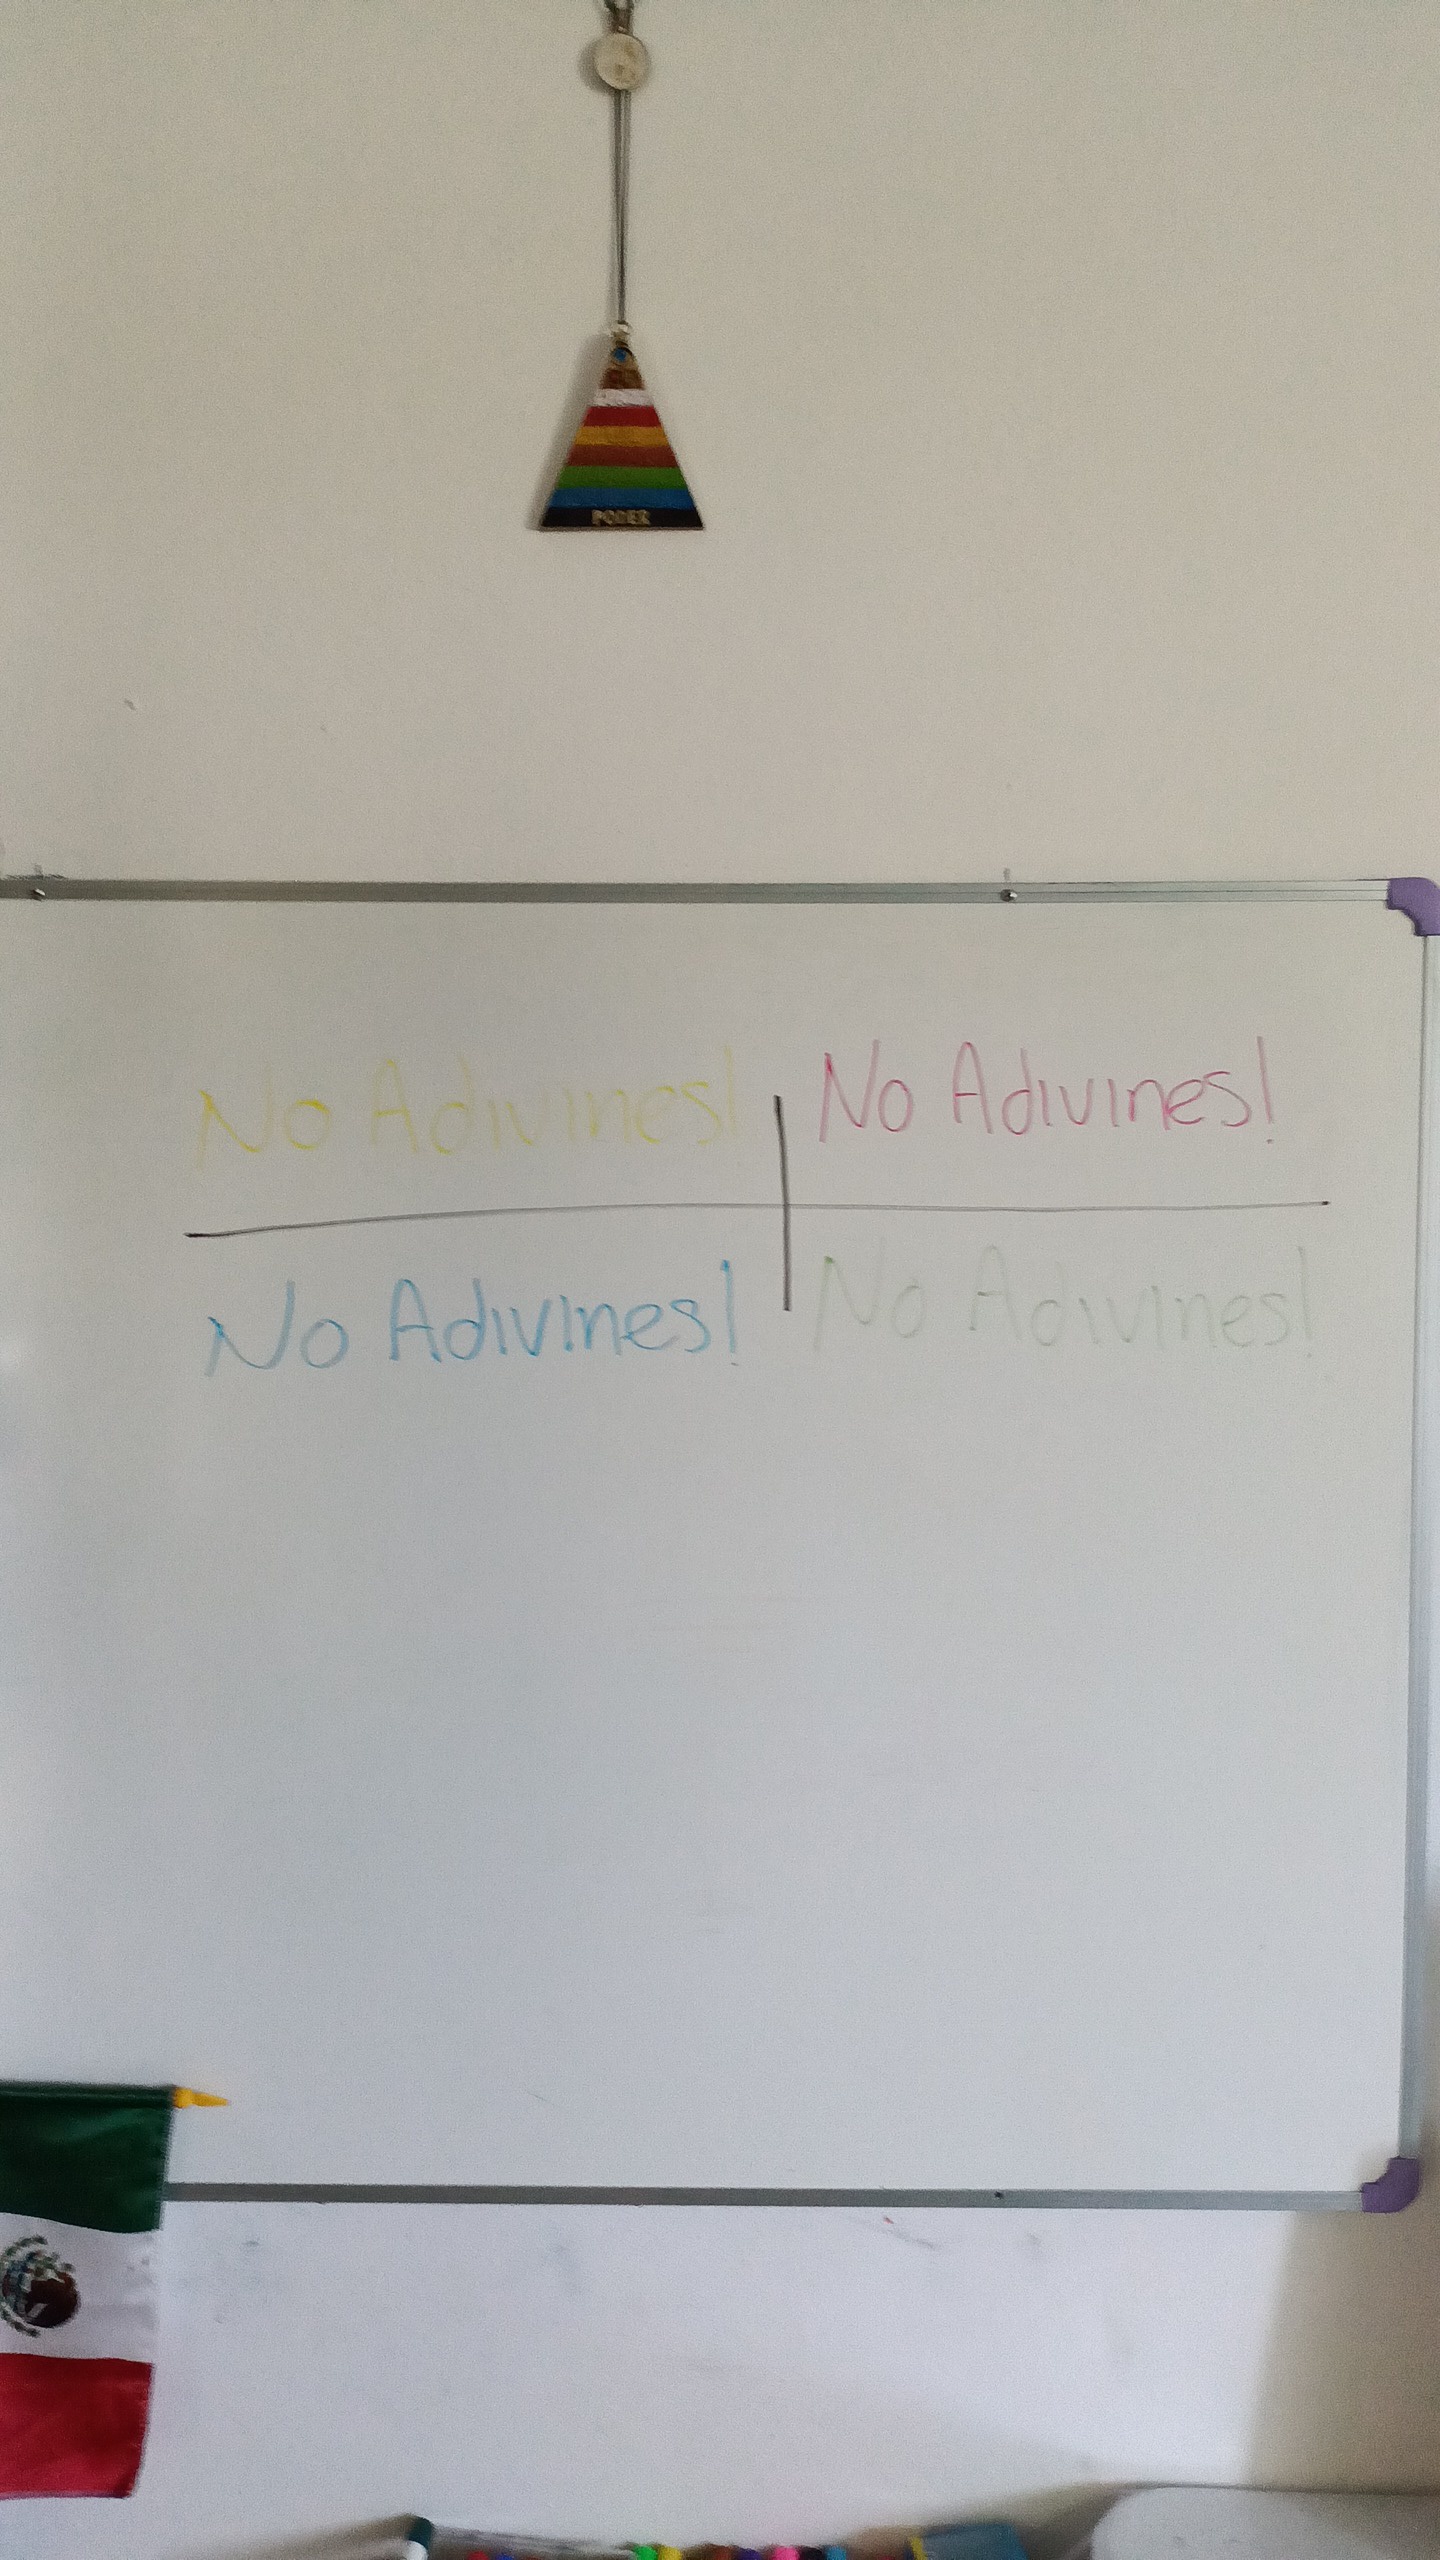 PODER
No Adivines! No Adivines!
No Adivines! No Adivines!